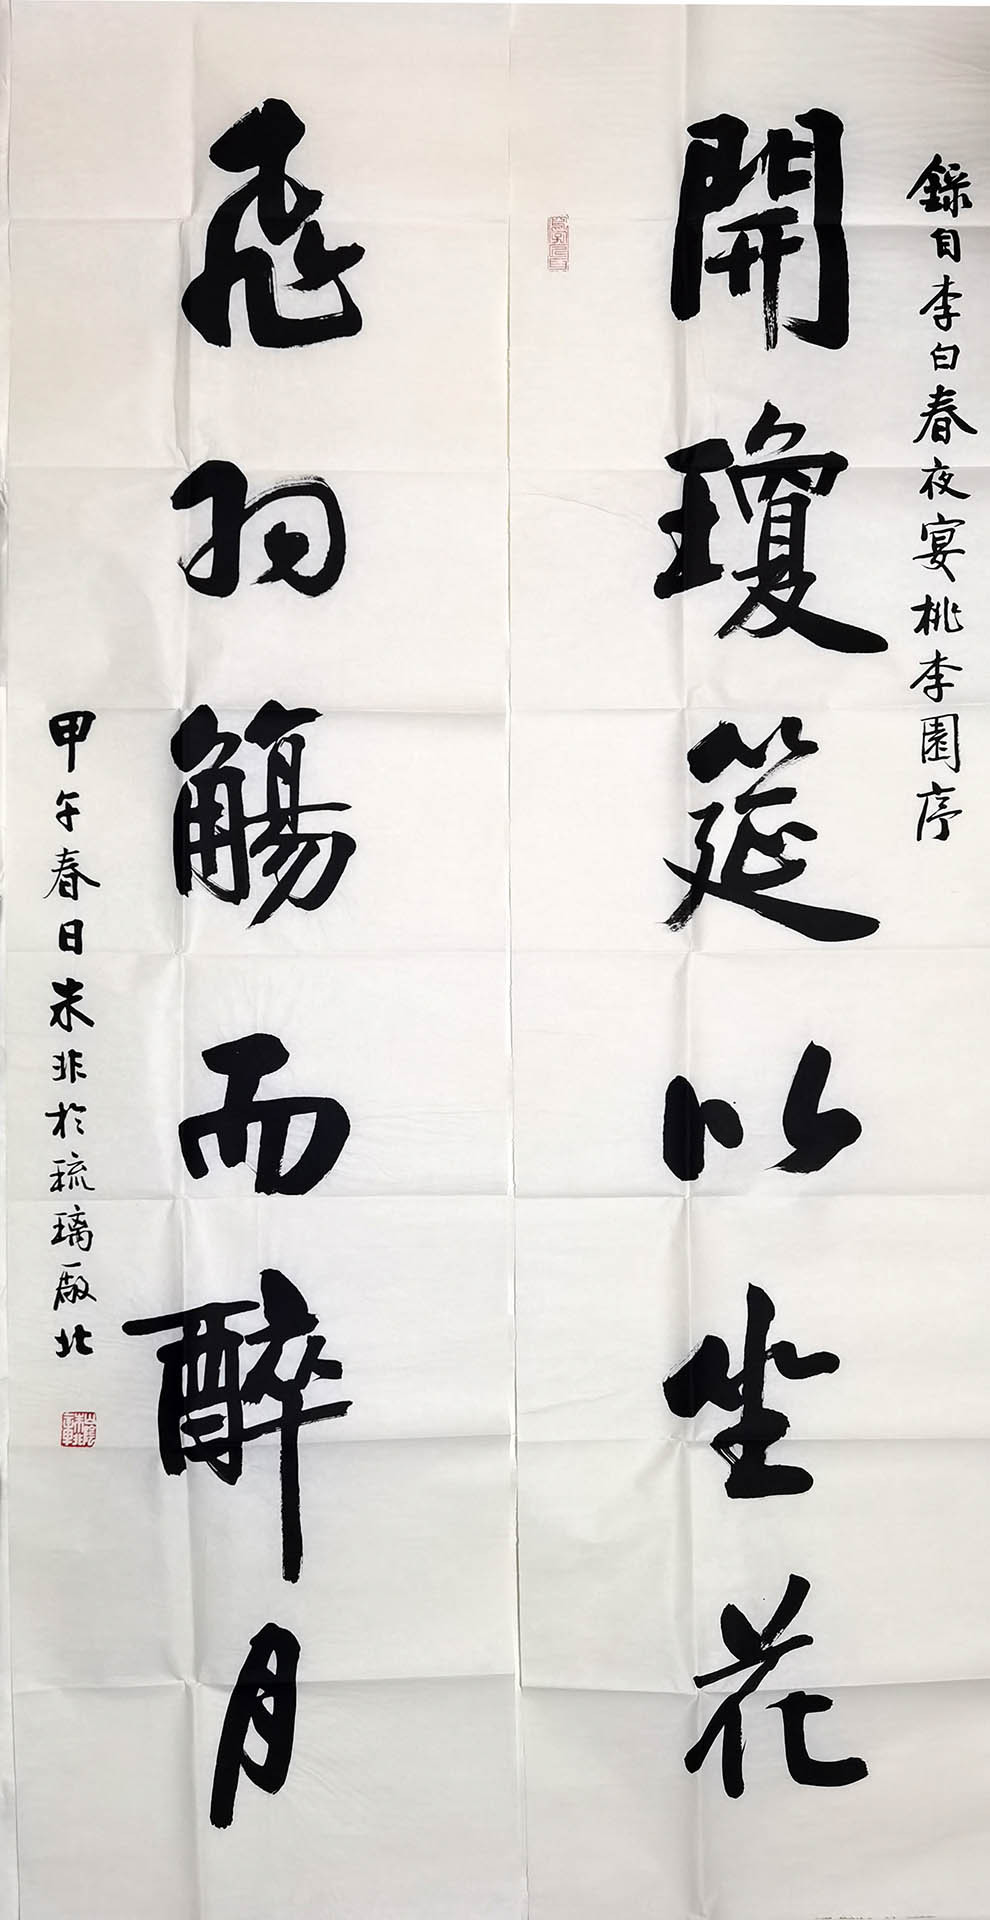 錄自李白春夜宴桃李園序
開瓊筵以坐花
飛羽觴而醉月
甲午春日朱非於琉璃廠北